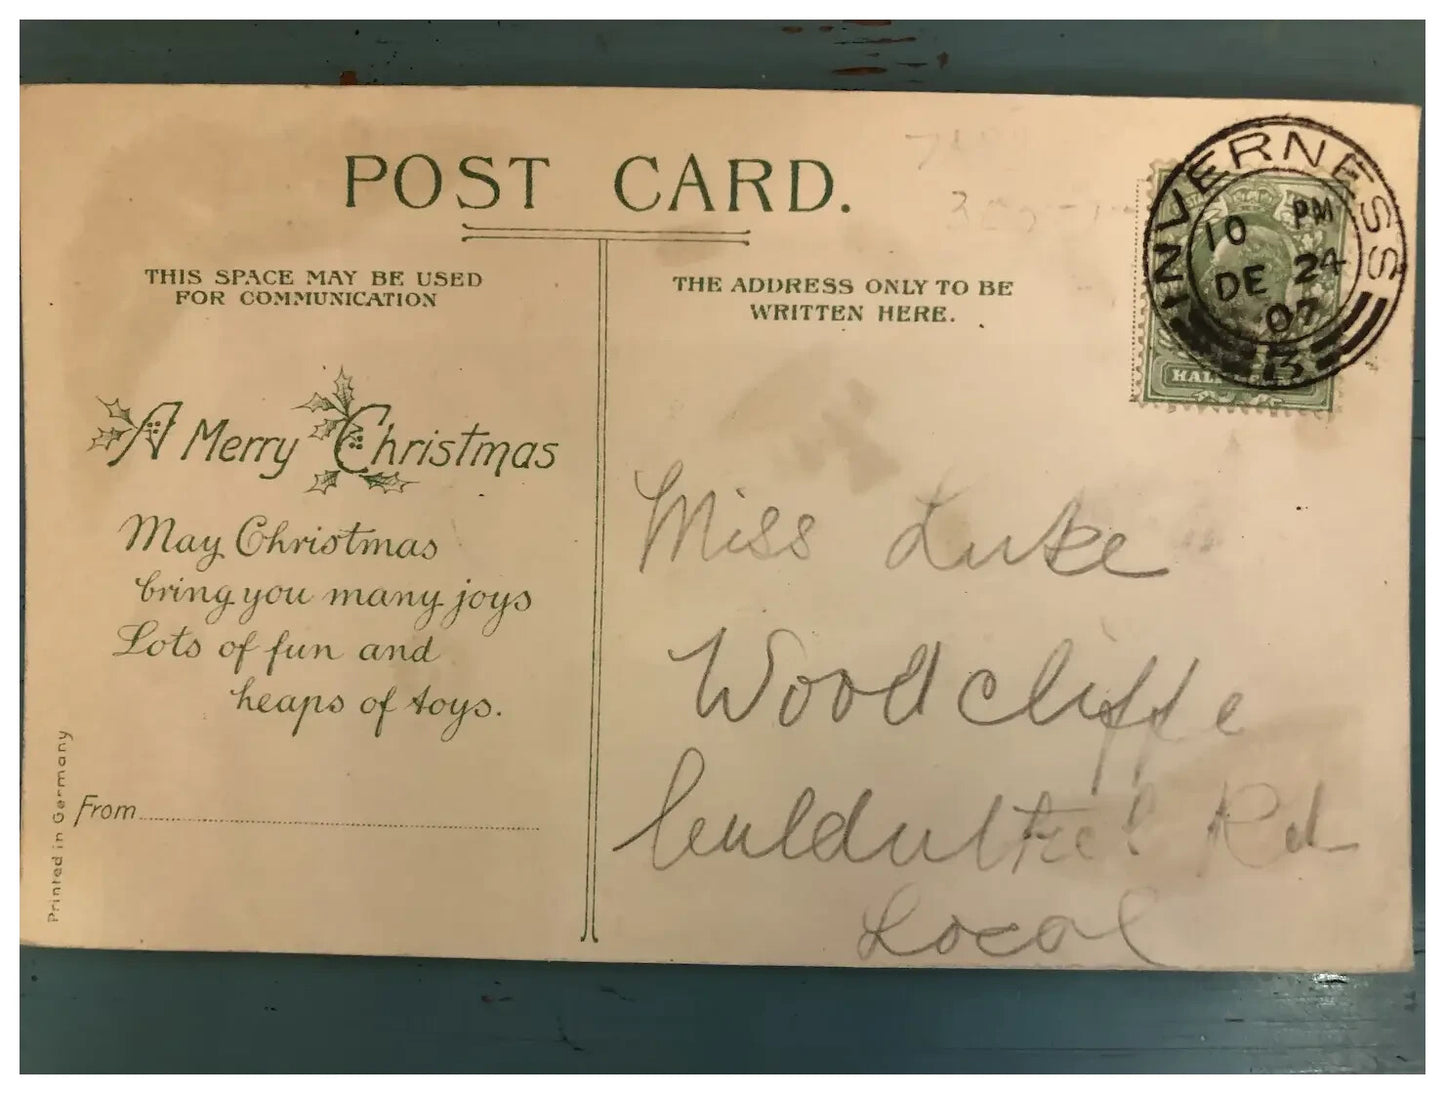 POST CARD.
THIS SPACE MAY BE USED
FOR COMMUNICATION
THE ADDRESS ONLY TO BE
WRITTEN HERE.
INVERNESS
10 PM
DE 24
07
3
HALF
A Merry Christmas
May Christmas
bring you many joys
Lots of fun and
heaps of toys.
From
Printed in Germany
Miss Luke
Woodcliffe
Culduthel Rd
Local